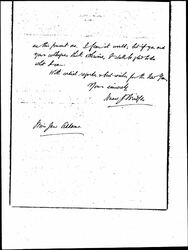 in the present one. I fear it would, but if you and
your colleagues think otherwise, I shall be glad to do
what I can.
With kind regards and best wishes for the New Year,
Yours sincerely
Miss Jane Addams